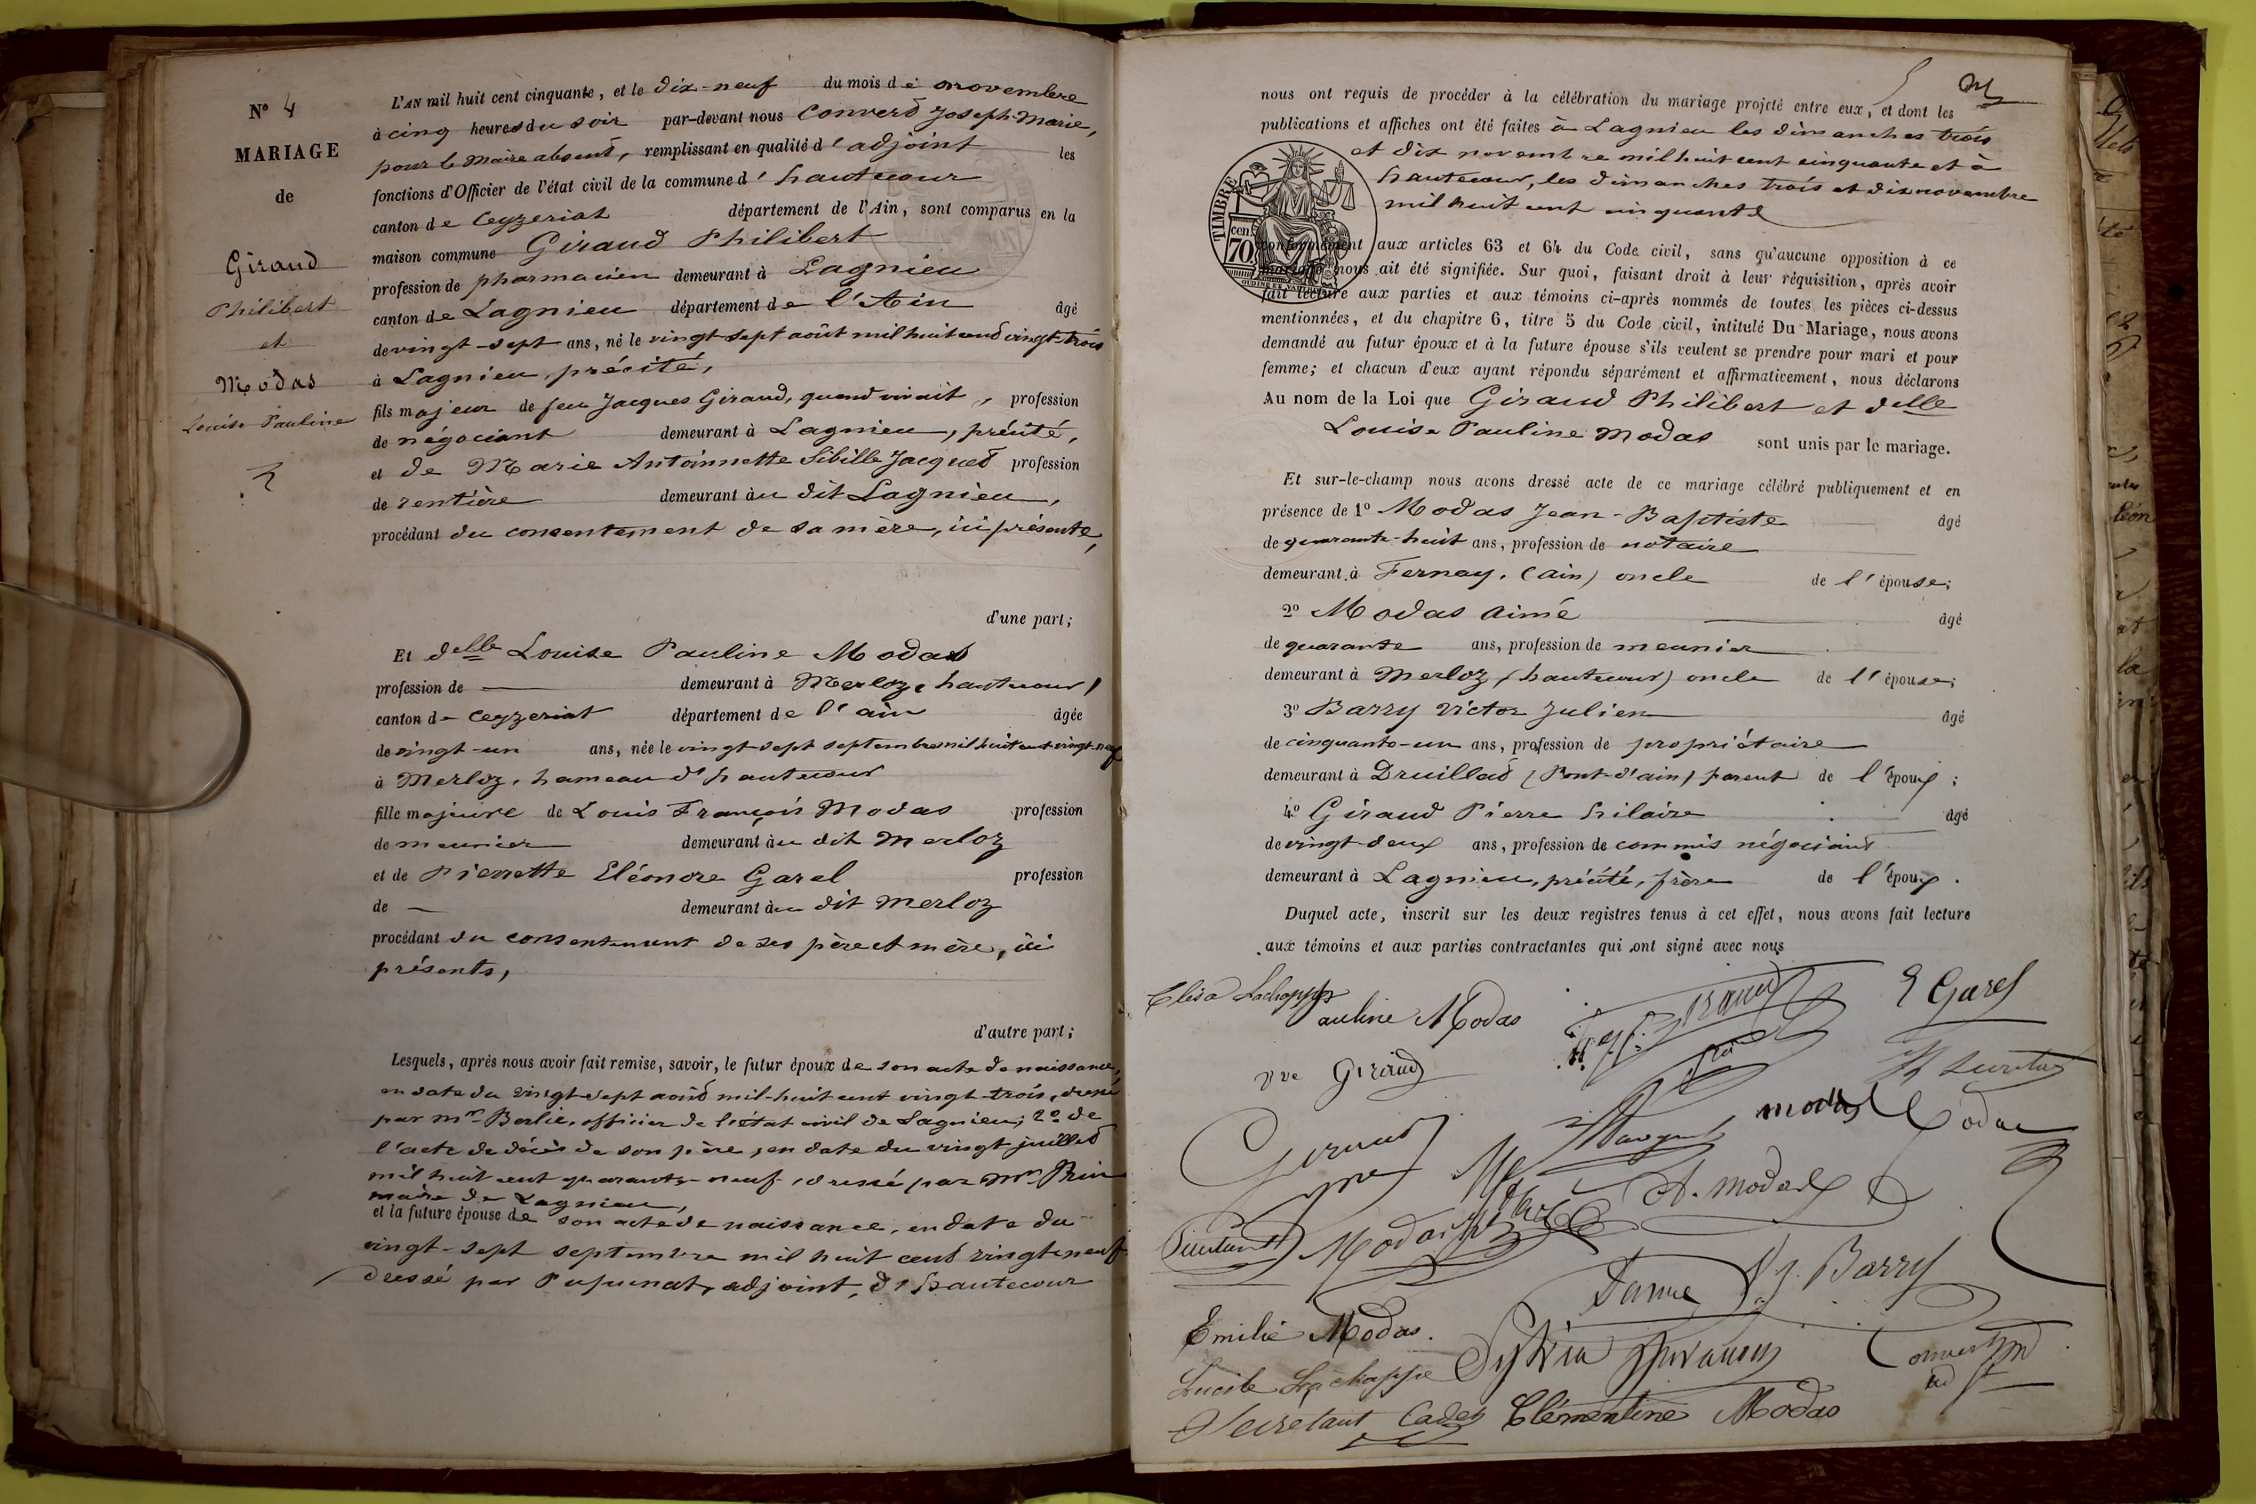 N° 4
MARIAGE
de
Giraud
Philibert
et
Modas
Louise Pauline
L'AN mil huit cent cinquante, et le dix-neuf du mois de novembre
à cinq heures du soir par-devant nous Converd Joseph-Marie,
pour le Maire absent, remplissant en qualité d'adjoint les
fonctions d'Officier de l'état civil de la commune d'hautecour
canton de Ceyzeriat département de l'Ain, sont comparus en la
maison commune Giraud Philibert
profession de pharmacien demeurant à Lagnieu
canton de Lagnieu département de l'Ain âgé
de vingt-sept ans, né le vingt-sept août mil huit cent vingt-trois
à Lagnieu, précité,
fils majeur de feu Jacques Giraud, quand vivait, profession
de négociant demeurant à Lagnieu, précité,
et de Marie Antoinnette Sibille Jacqued profession
de rentière demeurant au dit Lagnieu,
procédant du consentement de sa mère, ici présente,
d'une part;
Et delle Louise Pauline Modas
profession de demeurant à Merloz, hautecour,
canton de Ceyzeriat département de l'ain âgée
de vingt-un ans, née le vingt-sept septembre mil huit cent vingt-neuf
à Merloz, hameau d'hautecour
fille majeure de Louis François Modas profession
de meunier demeurant au dit Merloz
et de Pierrette Eléonore Garel profession
de demeurant au dit Merloz
procédant du consentement de ses père et mère, ici
présents,
d'autre part;
Lesquels, après nous avoir fait remise, savoir, le futur époux de son acte de naissance,
en date du vingt-sept août mil-huit cent vingt-trois, dressé
par Mr Berlie, officier de l'état civil de Lagnieu; 2° de
l'acte de décès de son père, en date du vingt juillet
mil huit cent quarante-neuf, dressé par Mr Brin
maire de Lagnieu,
et la future épouse de son acte de naissance, en date du
vingt-sept septembre mil huit cent vingt-neuf
dressé par Pupunat, adjoint, d'hautecour
nous ont requis de procéder à la célébration du mariage projeté entre eux, et dont les
publications et affiches ont été faites à Lagnieu les dimanches trois
et dix novembre mil huit cent cinquante et à
hautecour, les dimanches trois et dix novembre
mil huit cent cinquante
TIMBRE
70 cen
conformément aux articles 63 et 64 du Code civil, sans qu'aucune opposition à ce
mariage nous ait été signifiée. Sur quoi, faisant droit à leur réquisition, après avoir
fait lecture aux parties et aux témoins ci-après nommés de toutes les pièces ci-dessus
mentionnées, et du chapitre 6, titre 5 du Code civil, intitulé Du Mariage, nous avons
demandé au futur époux et à la future épouse s'ils veulent se prendre pour mari et pour
femme; et chacun d'eux ayant répondu séparément et affirmativement, nous déclarons
Au nom de la Loi que Giraud Philibert et delle
Louise Pauline Modas sont unis par le mariage.
Et sur-le-champ nous avons dressé acte de ce mariage célébré publiquement et en
présence de 1° Modas Jean-Baptiste âgé
de quarante-huit ans, profession de notaire
demeurant à Fernay, (ain) oncle de l'épouse;
2° Modas Aimé âgé
de quarante ans, profession de meunier
demeurant à Merloz, (hautecour) oncle de l'épouse;
3° Barry Victor Julien âgé
de cinquante-un ans, profession de propriétaire
demeurant à Druillad (Pont-d'ain) parent de l'époux;
4° Giraud Pierre hilaire âgé
de vingt-deux ans, profession de commis négociant
demeurant à Lagnieu, précité, frère de l'époux.
Duquel acte, inscrit sur les deux registres tenus à cet effet, nous avons fait lecture
aux témoins et aux parties contractantes qui ont signé avec nous
Elisa Lachappe
Pauline Modas
Giraud
E Garel
Vve Giraud
Giraud
Modas
A. Modas
Modas
V. J. Barry
Emilie Modas.
Sylvia
Converd
Lucile Lachappe
Secretant Cadet
Clémentine Modas